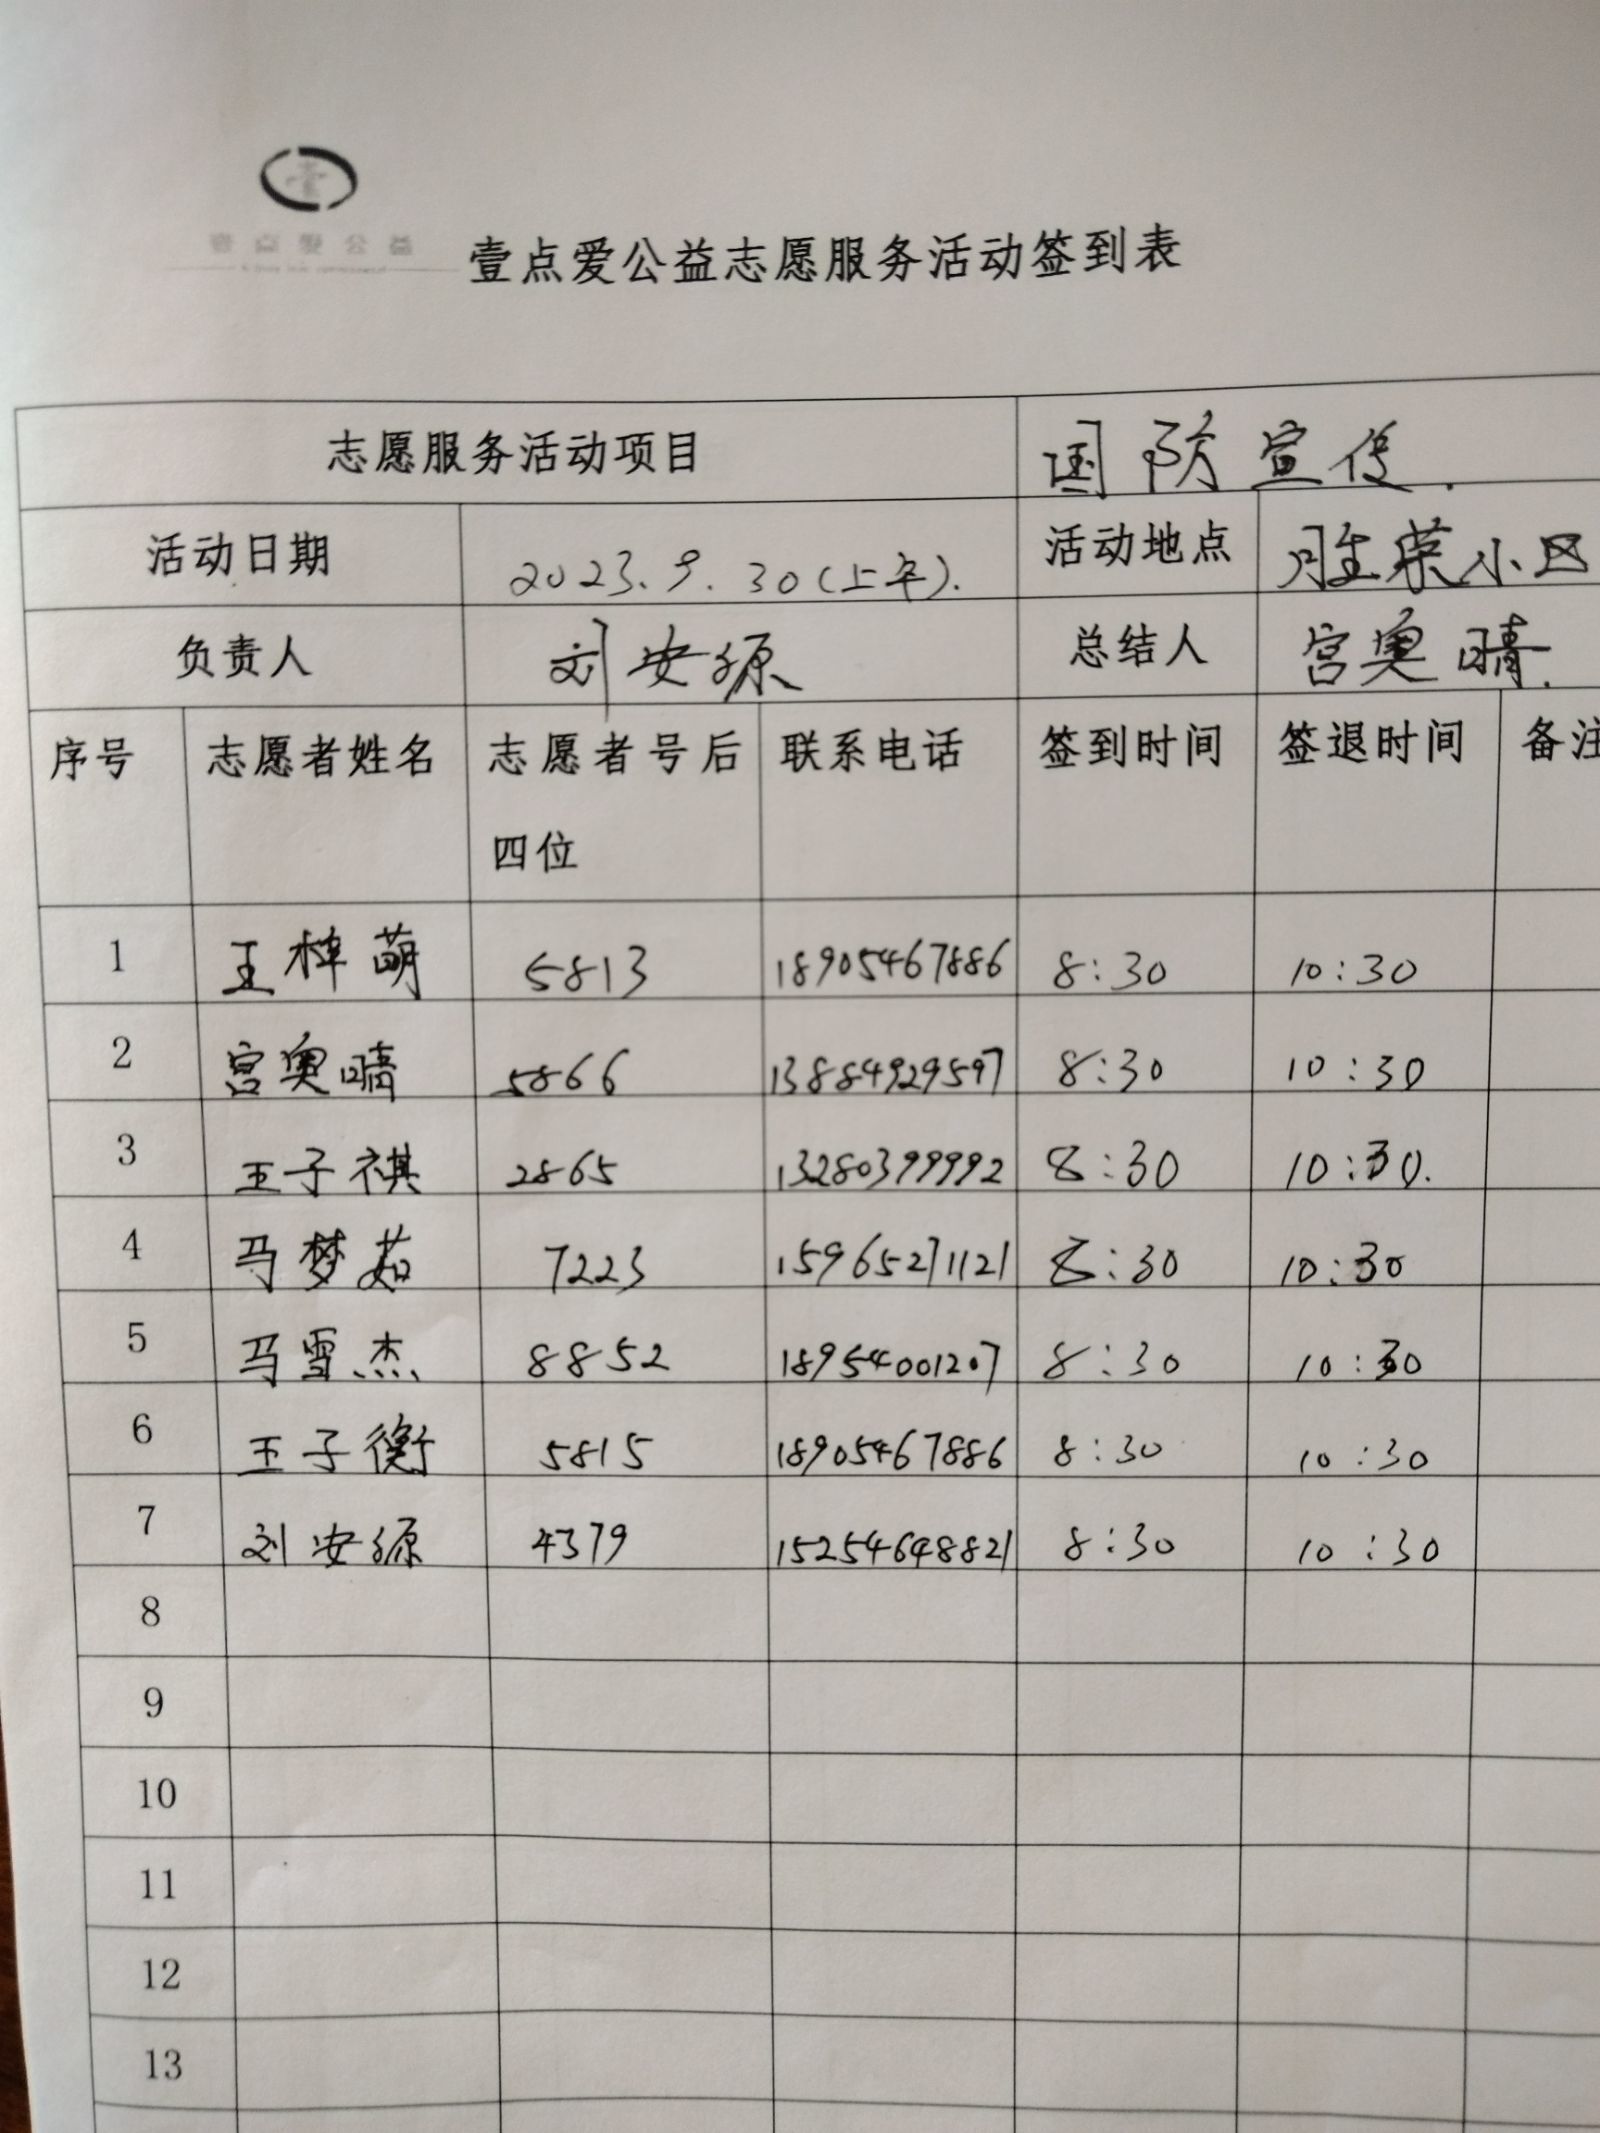 壹点爱公益
壹点爱公益志愿服务活动签到表
志愿服务活动项目 国防宣传.
活动日期 2023.9.30(上午). 活动地点 胜荣小区
负责人 刘安源 总结人 宫奥晴.
序号 志愿者姓名 志愿者号后四位 联系电话 签到时间 签退时间 备注
1 王梓萌 5813 18905467886 8:30 10:30
2 宫奥晴 5866 13884929597 8:30 10:30
3 王子祺 2865 13280399992 8:30 10:30.
4 马梦茹 7223 15965271121 8:30 10:30
5 马雪杰 8852 18954001207 8:30 10:30
6 王子衡 5815 18905467886 8:30 10:30
7 刘安源 4379 15254648821 8:30 10:30
8
9
10
11
12
13